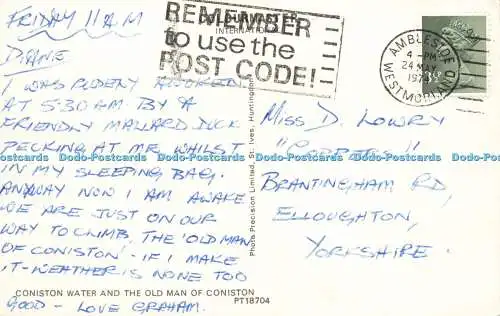 FRIDAY 11 A.M
DIANE
I WAS RUDELY AWOKEN
AT 5.30 AM BY A
FRIENDLY MALLARD DUCK
PECKING AT ME WHILST
IN MY SLEEPING BAG.
ANYWAY NOW I AM AWAKE
WE ARE JUST ON OUR
WAY TO CLIMB THE 'OLD MAN
OF CONISTON' - IF I MAKE
IT - WEATHER IS NONE TOO
GOOD - LOVE GRAHAM.
CONISTON WATER AND THE OLD MAN OF CONISTON
PT18704
COLOURMASTER
INTERNATIONAL
Photo Precision Limited, St. Ives, Huntingdon
REMEMBER
to use the
POST CODE!
AMBLESIDE
24 MAY
WESTMORLAND
MISS D. LOWRY
"COPPERS"
BRANTINGHAM RD,
ELLOUGHTON,
YORKSHIRE.
Dodo-Postcards Dodo-Postcards Dodo-Postcards Dodo-Postcards Dodo-Postcards